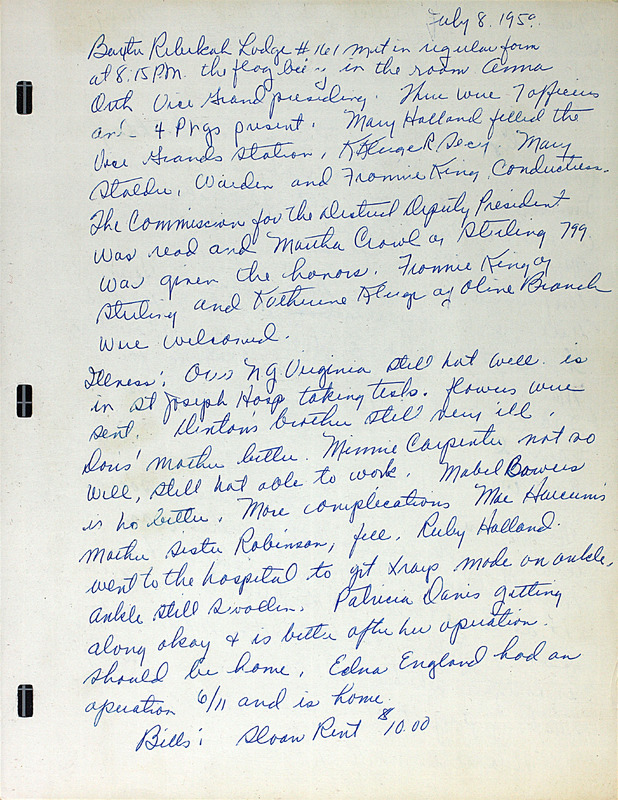 July 8. 1959.
Baxter Rebekah Lodge #161 met in regular form
at 8:15 P.M. the flag being in the room Anna
Orth Vice Grand presiding. There were 7 officers
and 4 P.N.gs present. Mary Holland filled the
Vice Grands Station, K Kluge R Secy Mary
Stalder, Warden and Fronnie King, Conductress.
The Commission for the District Deputy President
was read and Martha Crowl of Sterling 799
was given the honors. Fronnie King of
Sterling and Katherine Kluge of Olive Branch
were welcomed.
Illness: Our NG Virginia still not well. is
in St Joseph Hosp taking tests. flowers were
sent. Clintons brother still very ill.
Doris' mother better. Minnie Carpenter not so
well, still not able to work. Mabel Bowers
is no better. More complications Mae
mother Sister Robinson, fell. Ruby Holland
went to the hospital to get Xrays made on ankle,
ankle still swollen. Patricia Davis getting
along okay & is better after her operation.
should be home. Edna England had an
operation 6/11 and is home.
Bills: Sloan Rent $10.00